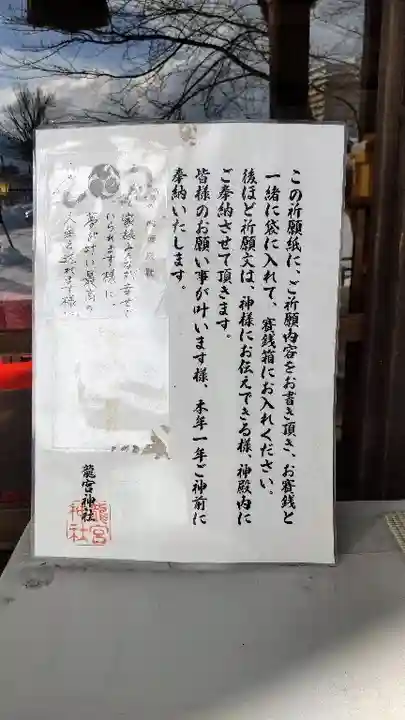 この祈願紙に、ご祈願内容をお書き頂き、お賽銭と
一緒に袋に入れて、賽銭箱にお入れください。
後ほど祈願文は、神様にお伝えできる様、神殿内に
ご奉納させて頂きます。
皆様のお願い事が叶います様、本年一年ご神前に
奉納いたします。
家族みんなが幸せで
いられます様に
夢が叶い最高の
人生を送れます様に
龍宮神社
龍宮
神社